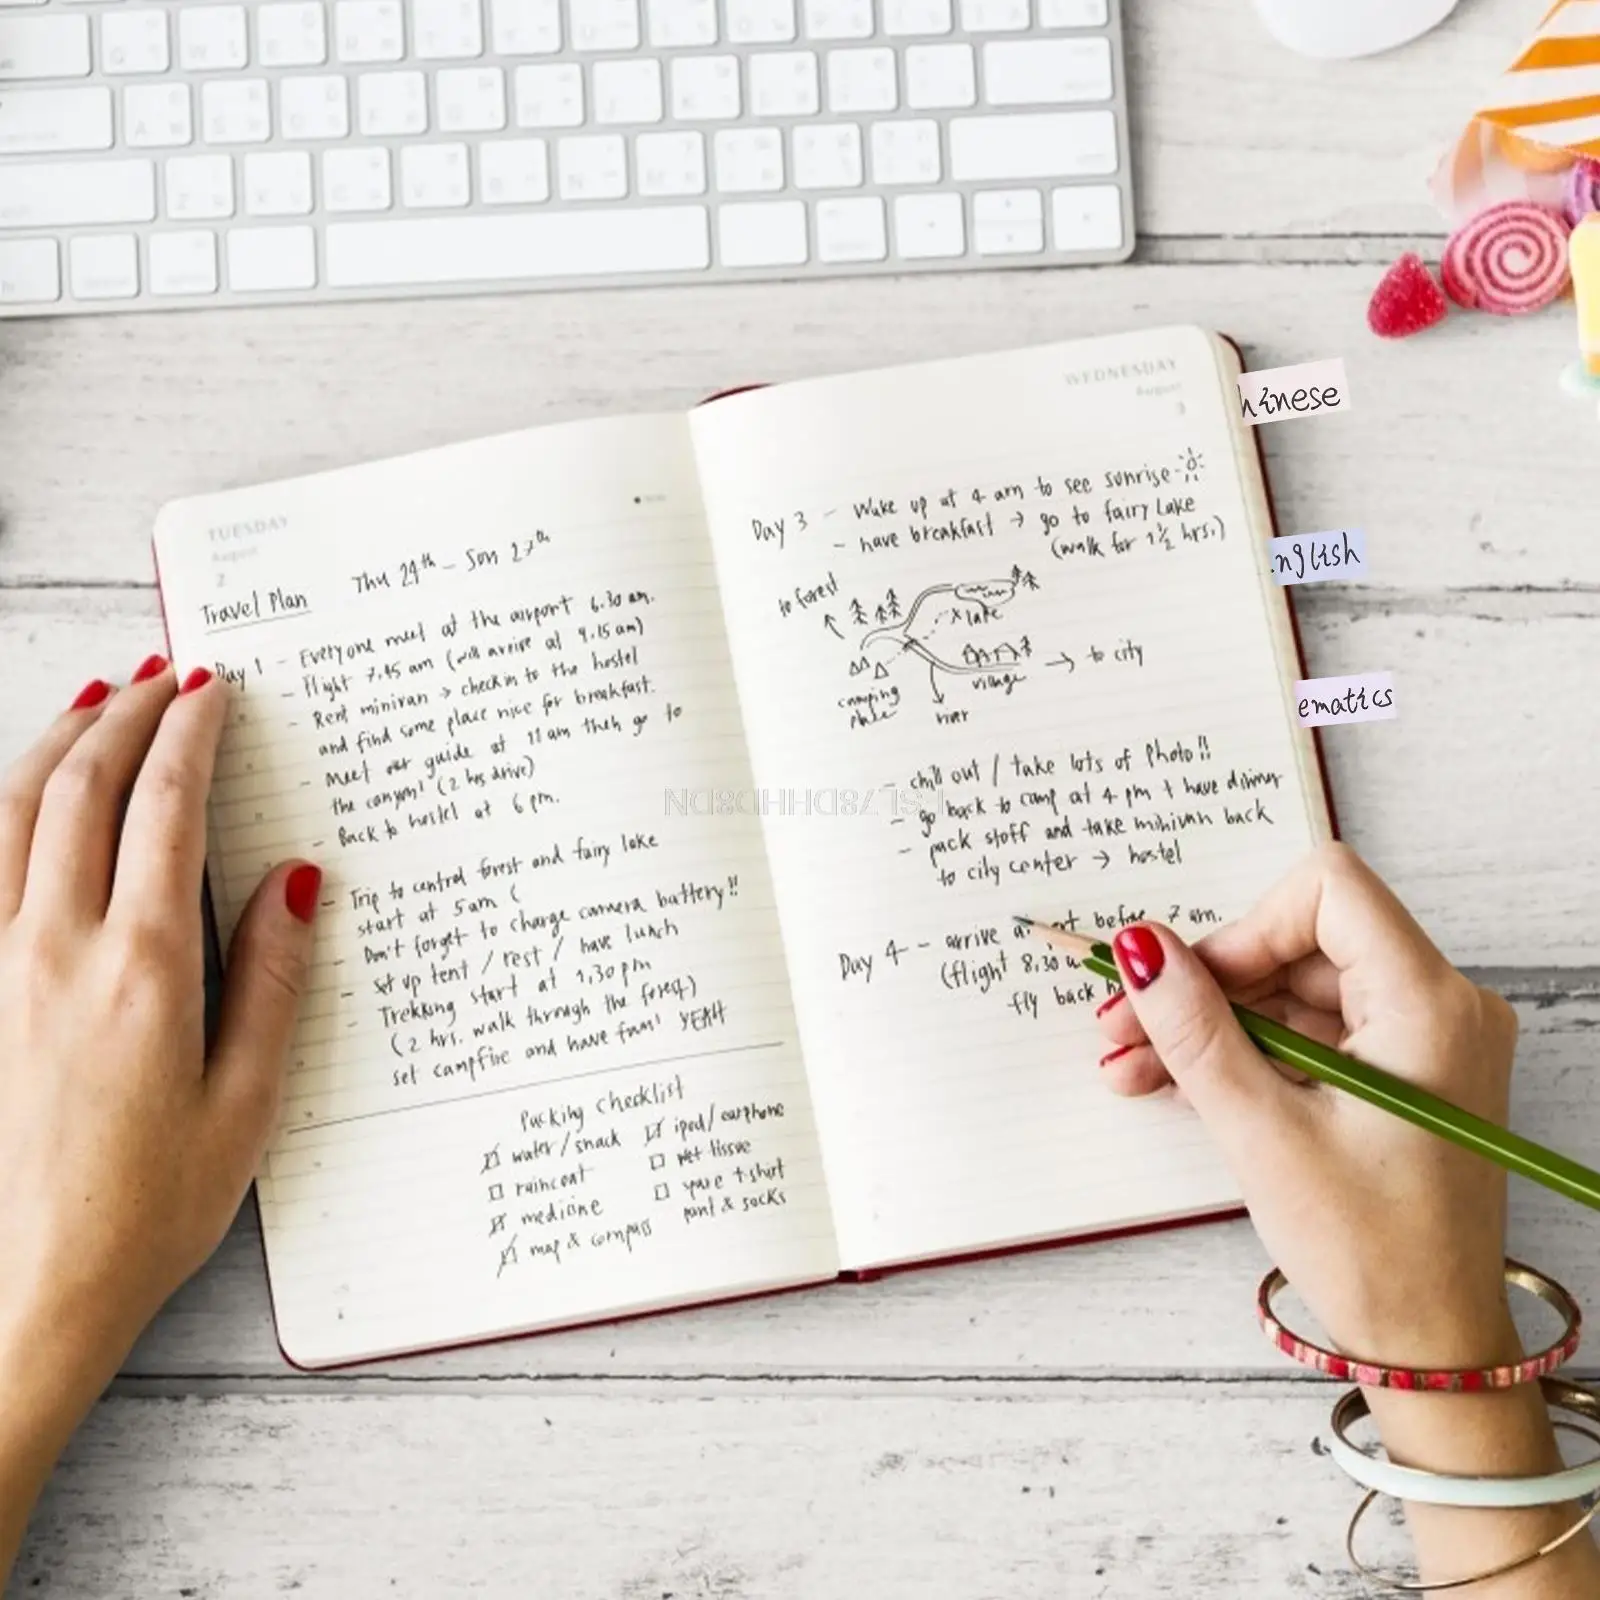 TUESDAY
August
2
Travel Plan Thu 24th - Sun 27th
Day 1 - Everyone meet at the airport 6.30 am.
- Flight 7.45 am (will arrive at 9.15 am)
- Rent minivan → check in to the hostel
and find some place nice for breakfast.
- Meet our guide at 11 am then go to
the canyon! (2 hrs drive)
- Back to hostel at 6 pm.
- Trip to central forest and fairy lake
start at 5am (
- Don't forget to charge camera battery!!
- Set up tent / rest / have lunch
- Trekking start at 1,30 pm
(2 hrs. walk through the forest)
set campfire and have fun! YEAH
Packing Checklist
water / snack
raincoat
medicine
map & compass
ipod / earphone
wet tissue
spare t-shirt
pant & socks
WEDNESDAY
August
3
Day 3 - Wake up at 4 am to see sunrise
- have breakfast → go to fairy Lake
(walk for 1½ hrs.)
to forest
x lake
camping
place
village
→ to city
river
- chill out / take lots of photo!!
- go back to camp at 4 pm + have dinner
- pack stuff and take minivan back
to city center → hostel
Day 4 - arrive before 7 am.
(flight 8,30
fly back
hinese
nglish
ematics
NDSDHHD87LSL